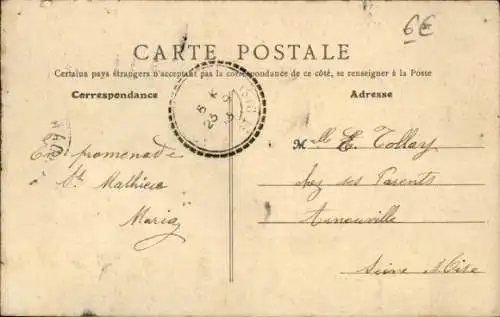 6€
CARTE POSTALE
Certains pays étrangers n'acceptant pas la correspondance de ce côté, se renseigner à la Poste
Correspondance
Adresse
En promenade
St Mathieu
Maria
Mlle E. Tollay
chez ses Parents
Arnouville
Seine & Oise